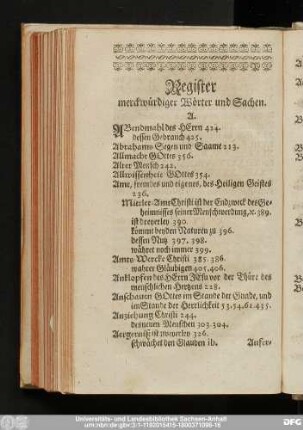 Register
merckwürdiger Wörter und Sachen.
A.
ABendmahl des HErrn 424.
dessen Gebrauch 425.
Abrahams Segen und Saame 223.
Allmacht GOttes 356.
Alter Mensch 242.
Allwissenheit GOttes 354.
Amt, fremdes und eigenes, des Heiligen Geistes
236.
Mittler-Amt Christi ist der Endzweck der Ge-
heimnissen seiner Menschwerdung, ꝛc. 389.
ist dreyerley 390.
kommt beyden Naturen zu 396.
dessen Nutz 397. 398.
währet noch immer 399.
Amts-Wercke Christi 385. 386.
wahrer Gläubigen 405. 406.
Anklopffen des HErrn JEsu vor der Thüre des
menschlichen Hertzens 228.
Anschauen GOttes im Stande der Gnade, und
im Stande der Herrlichkeit 53. 54. 61. 435.
Anziehung Christi 244.
des neuen Menschen 303. 304.
Aergernuß ist zweyerley 326.
schwächet den Glauben ib.
Aufer-
Universitäts- und Landesbibliothek Sachsen-Anhalt
urn:nbn:de:gbv:3:1-1192015415-180037109
DFG